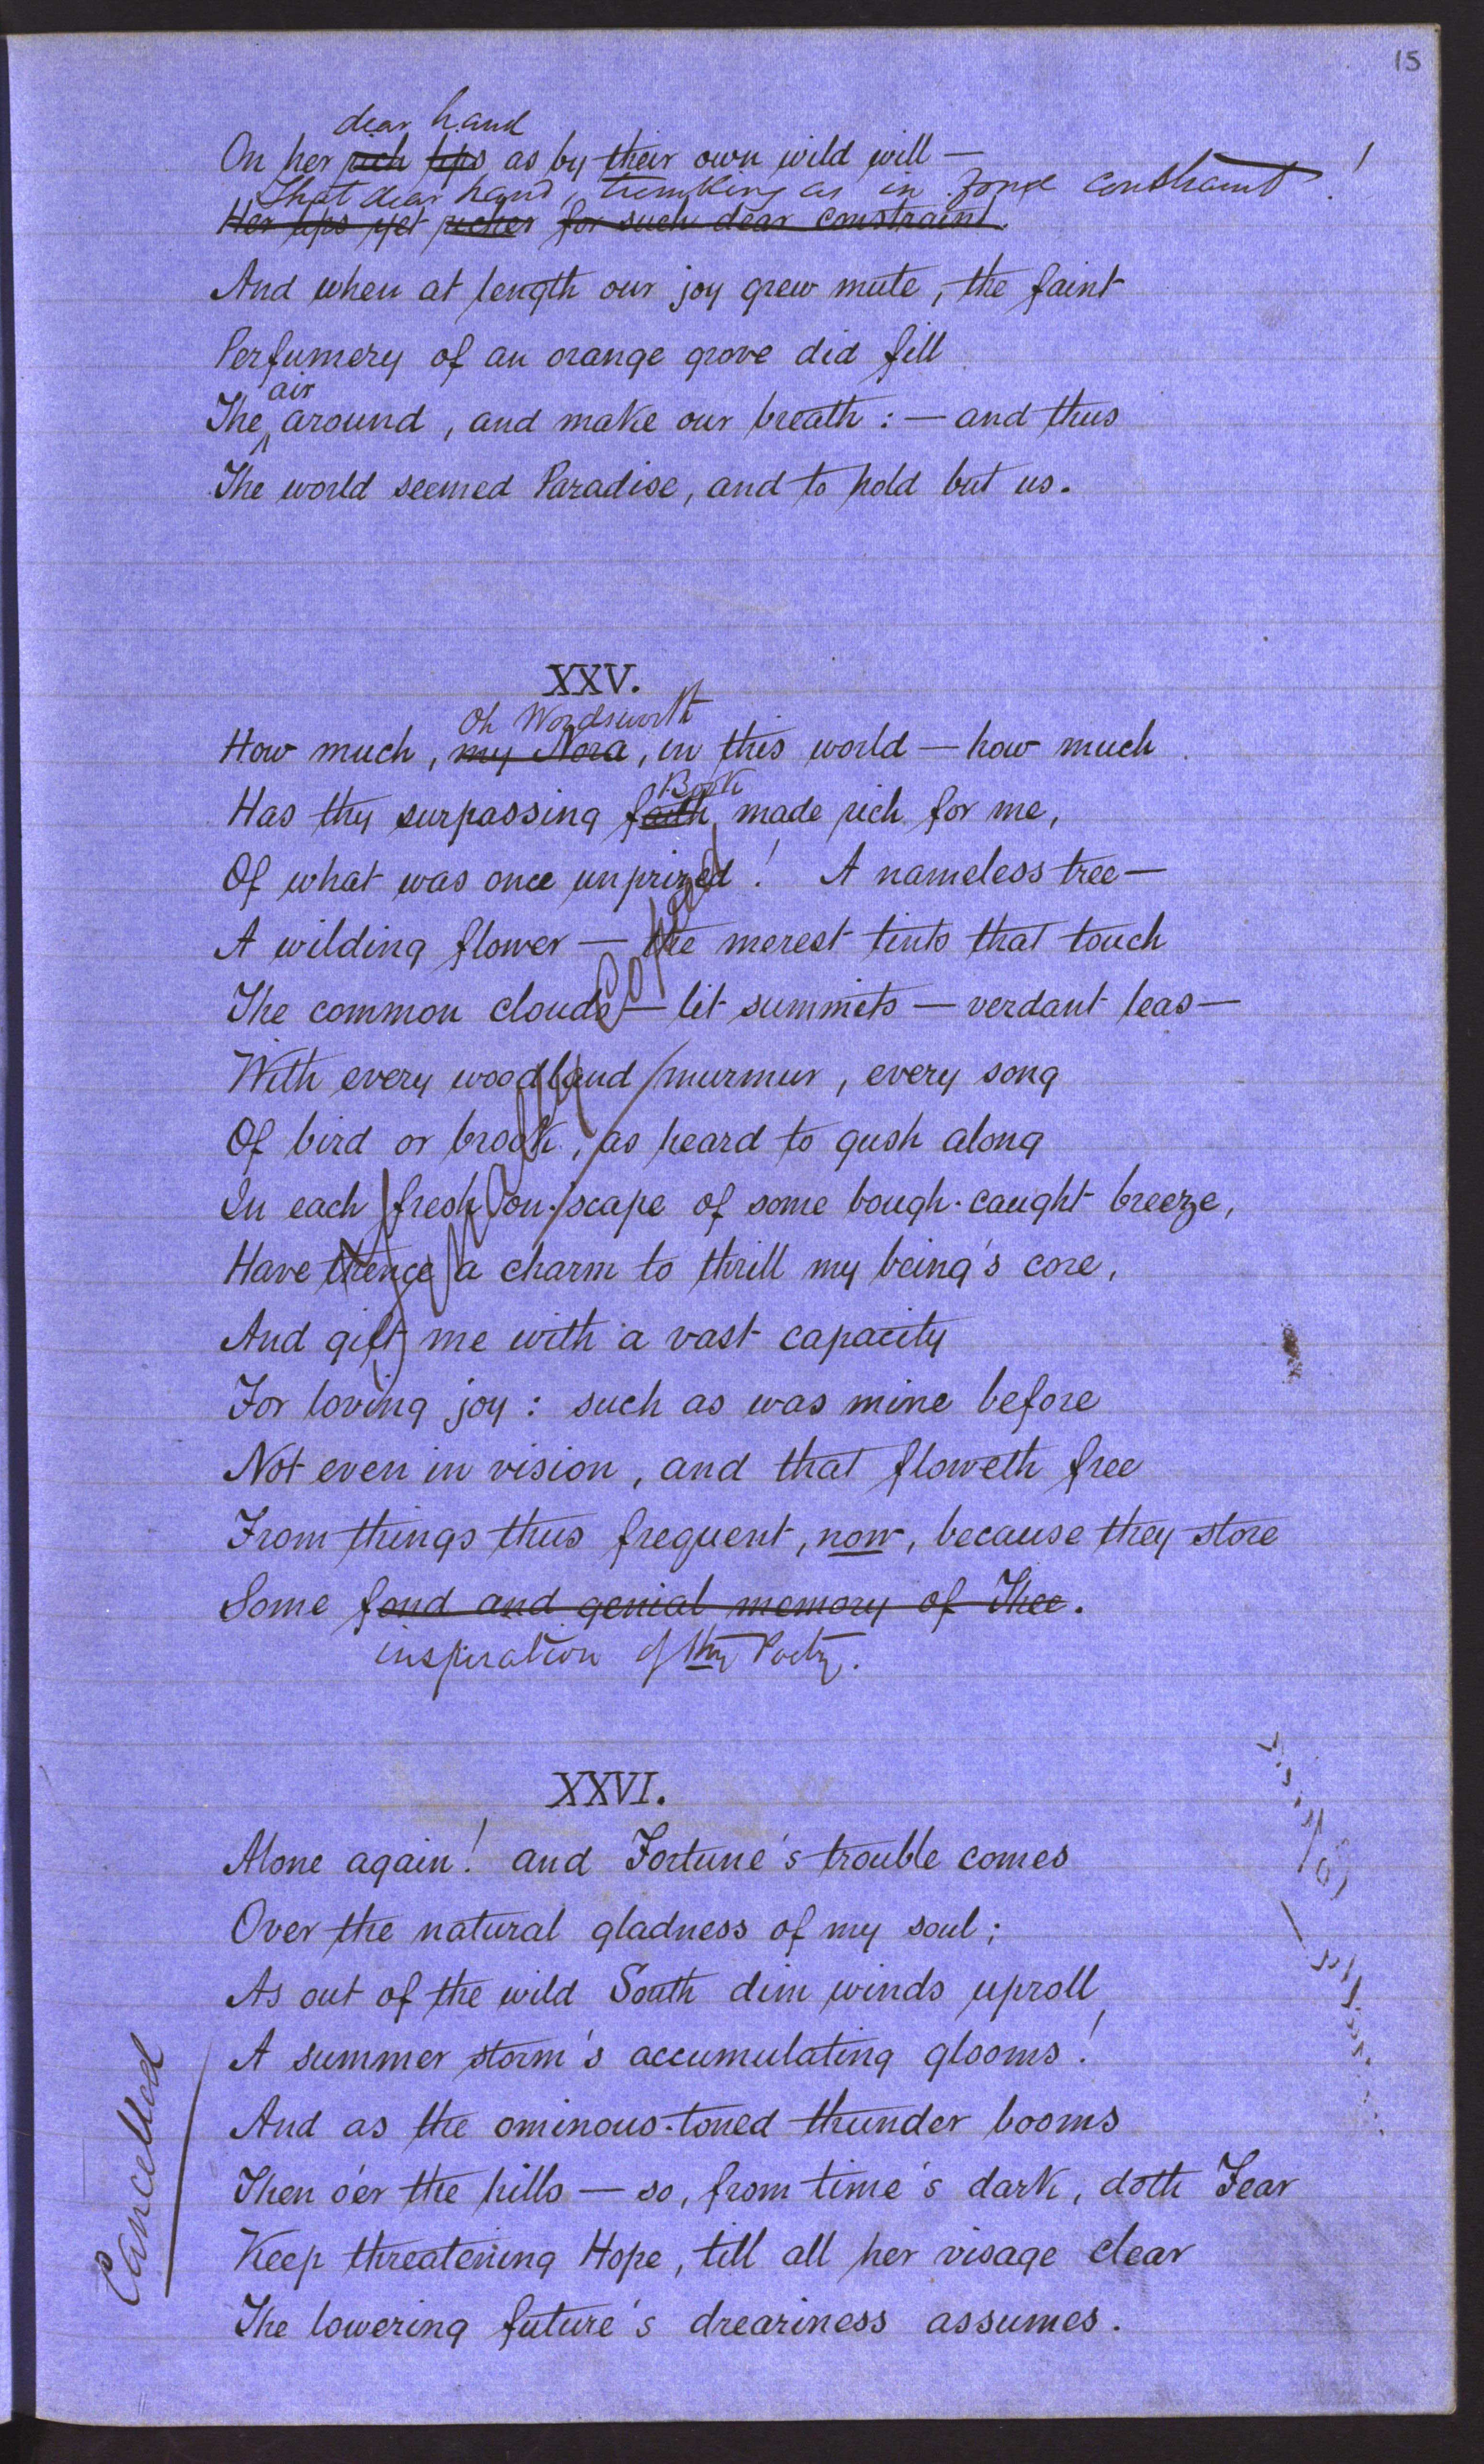 15
dear hand
On her rich lips as by their own wild will —
That dear hand, trembling as in fond constraint!
Her lips yet richer for such dear constraint.
And when at length our joy grew mute, the faint
Perfumery of an orange grove did fill
air
The ^ around, and make our breath : — and thus
The world seemed Paradise, and to hold but us.
XXV.
Oh Wordsworth
How much, my Nora, in this world — how much
Book
Has thy surpassing faith made rich for me,
Of what was once unprized! A nameless tree —
A wilding flower — the merest tints that touch
The common clouds — lit summits — verdant leas —
With every woodland murmur, every song
Of bird or brook, as heard to gush along
In each fresh on-'scape of some bough-caught breeze,
Have thence a charm to thrill my being's core,
And gift me with a vast capacity
For loving joy : such as was mine before
Not even in vision, and that floweth free
From things thus frequent, now, because they store
Some fond and genial memory of Thee.
inspiration of thy Poetry.
Copied
XXVI.
Alone again! and Fortune's trouble comes
Over the natural gladness of my soul;
As out of the wild South dim winds uproll
A summer storm's accumulating glooms!
And as the ominous-toned thunder booms
Then o'er the hills — so, from time's dark, doth Fear
Keep threatening Hope, till all her visage clear
The lowering future's dreariness assumes.
Cancelled